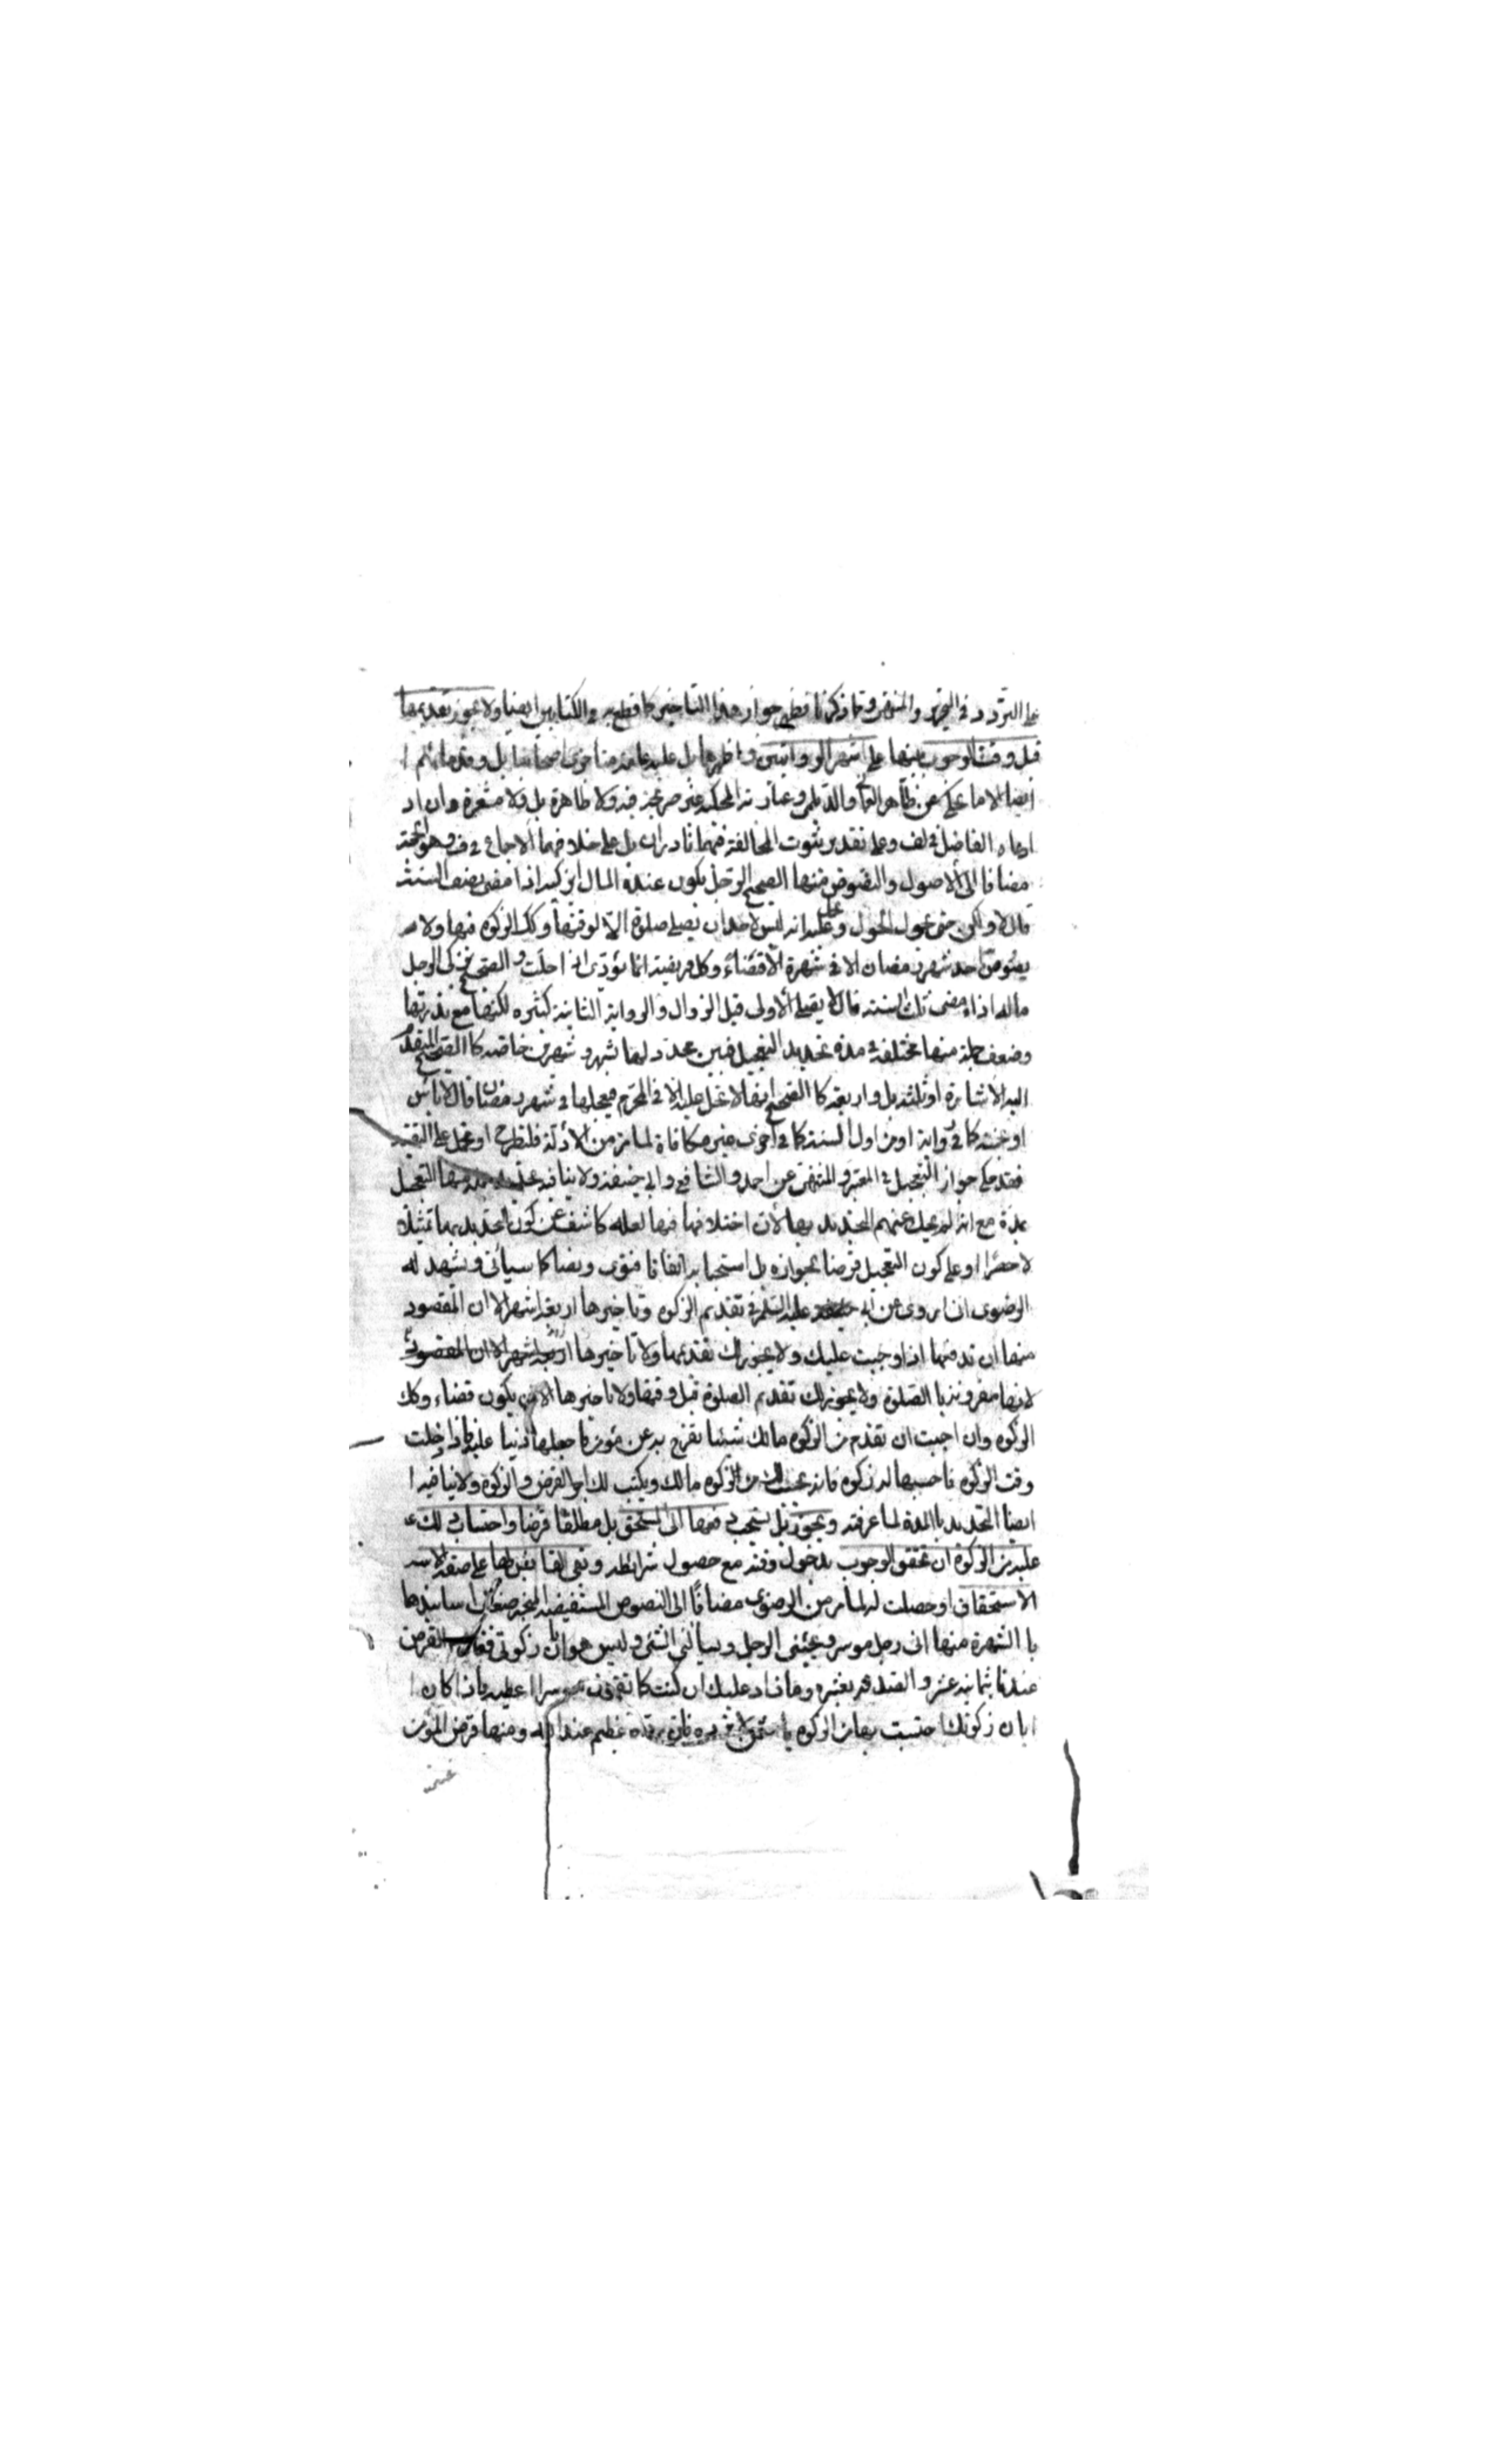 على التردد في التحرير والمنتهى ومما ذكرنا فظهر جواز هذا التاخير كما قطع به في الكتابين ايضا ولا يجوز تقديمها
قبل وقت الوجوب منها على اشهر الروايتين واظهرها بل عليه عامة متاخري اصحابنا بل وقدمائهم ا
ايضا الا ما يحكى عن ظاهر العماني والديلمي وعبارته المحكية غير صريحة فيه ولا ظاهرة بل ولا مشعرة وان اد
ادعاه الفاضل في لف وعلى تقدير ثبوت المخالفة فهما نادران بل على خلافهما الاجماع في ف وهو الحجة
مضافا الى الاصول والنصوص منها الصحيح الرجل يكون عنده المال ايزكيه اذا مضى نصف السنة
قال لا ولكن حتى يحول الحول ويحل عليه انه ليس لاحد ان يصلي صلوة الا لوقتها وكك الزكوة فيها ولا
يصوم احد شهر رمضان الا في شهره الا قضاء وكل فريضة انما تؤدى اذا حلت والصحيح يزكي الرجل
ماله اذا مضى ثلث السنة قال لا يصلي الاولى قبل الزوال والرواية الثانية كثيره لكنها مع ندرتها
وضعف جملة منها مختلفة في مدة تحديد التعجيل فبين محدد لها بشهر وشهرين خاصه كالصحيح المتقدم
اليه الاشارة او ثلثة بل واربعة كالصحيح ايضا لا تحل عليه الا في المحرم فيعجلها في شهر رمضان قال لا باس
او خمسة كما في رواية او من اول السنة كما في اخرى غير مكافاة لما مر من الادلة فلتطرح او تحمل على التقية
فقد حكي جواز التعجيل في المعتبر والمنتهى عن احمد والشافعي وابي حنيفة ولا ينافيه التعجيل
بمدة مع انه لم يحك عنهم التحديد بها لان اختلافها فيها لعله كاشف عن كون التحديد بها تمثيلا
لا حصرا او على كون التعجيل قرضا بجوازه بل استحبابه اتفاقا فتوى ونصا كما سياتي ويشهد له
الرضوي اني اروي عن ابي عليه السلم في تقديم الزكوة وتاخيرها اربعة اشهر الا ان المقصود
منها ان تدفعها اذا وجبت عليك ولا يجوز لك تقديمها ولا تاخيرها اربعة اشهر الا ان المقصود
لانها مقرونة بالصلوة ولا يجوز لك تقديم الصلوة قبل وقتها ولا تاخيرها الا ان يكون قضاء وكك
الزكوة وان احببت ان تقدم من الزكوة مالك شيئا تفرج به عن مؤمن فاجعلها دينا عليه فاذا حلت
وقت الزكوة فاحسبها له زكوة فانه يحسب لك من الزكوة مالك ويكتب لك اجر القرض والزكوة ولا ينافيه ا
ايضا التحديد بالمدة لما عرفته ويجوز بل يستحب دفعها الى المستحق بل مطلقا قرضا واحتساب ذلك ع
عليه من الزكوة ان تحقق الوجوب بدخول وقته مع حصول شرائطه وبقي القابض لها على صفة الاس
الاستحقاق او حصلت له لما مر من الرضوي مضافا الى النصوص المستفيضة المنجبر ضعاف اسانيدها
با الشهرة منها اني رجل موسر ويجيئني الرجل ويسالني الشئ وليس هو ابان زكوتي فقال القرض
عندنا بثمانية عشر والصدقة بعشرة وماذا عليك ان كنت كما تقول موسرا اعطيته فاذا كان ا
ابان زكوتك احتسبت بها من الزكوة يا عثمان لا ترده فان رده عظيم عند الله ومنها قرض المؤمن
غنيمة